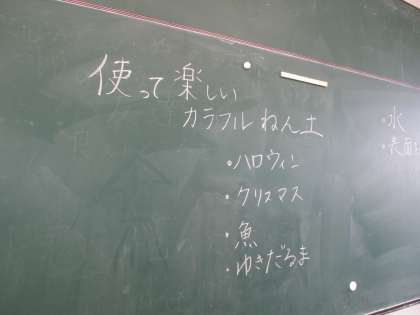 使って楽しい
カラフルねん土
・ハロウィン
・クリスマス
・魚
・ゆきだるま
・水
・表面